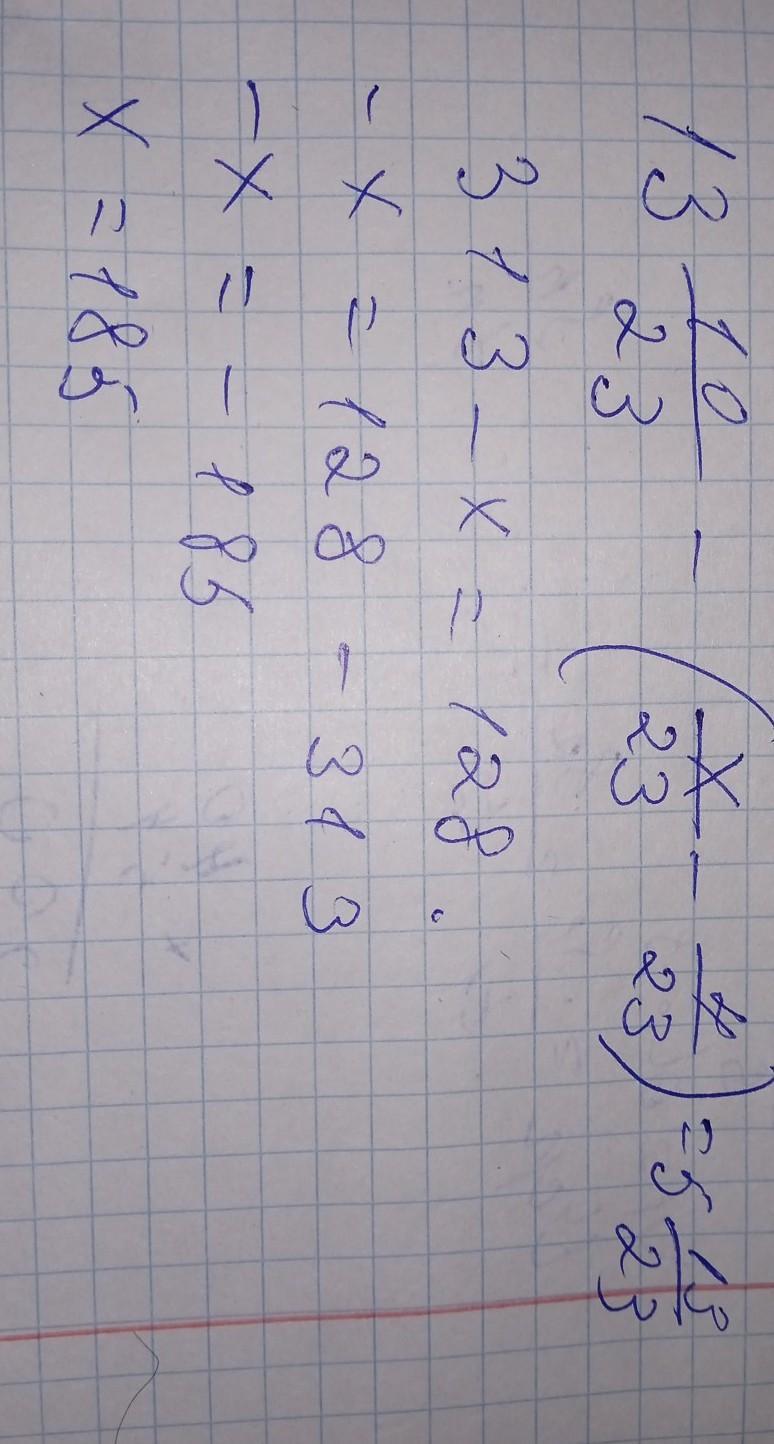 13 10/23 - (x/23 - 4/23) = 5 13/23
313 - x = 128.
- x = 128 - 313
- x = - 185
x = 185